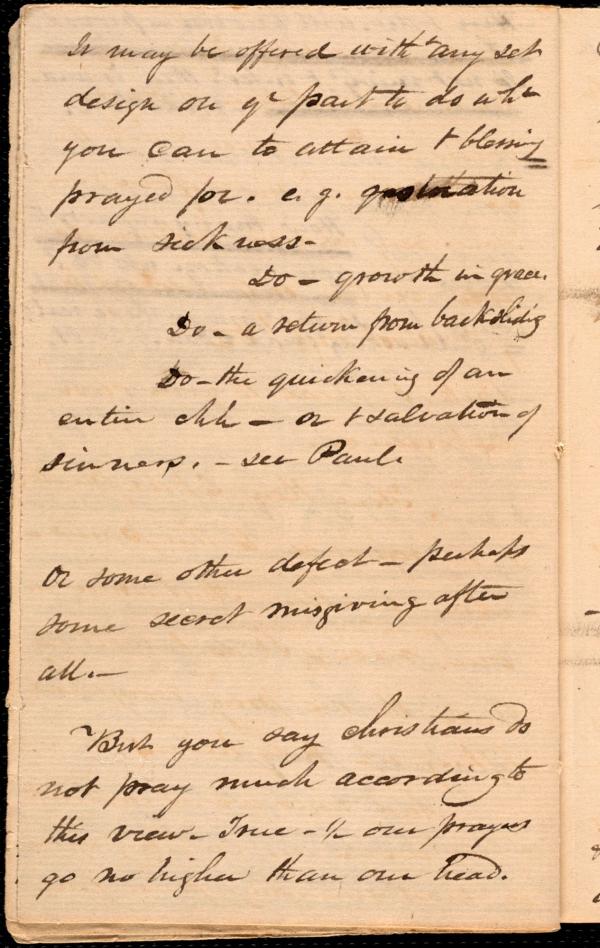 It may be offered witht any set
design on yr part to do wht
you can to attain t blessing
prayed for. e. g. restoration
from sickness-
Do - growth in grace.
Do - a return from backslidig
Do - the quickening of an
entire chh - or t salvation of
sinners. - see Paul.
Or some other defect - perhaps
some secret misgiving after
all. -
But you say christians do
not pray much according to
this view - True - & our prayers
go no higher than our head.